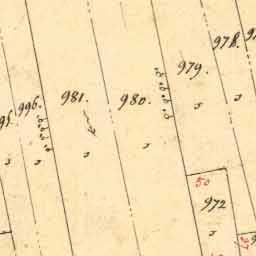 978.
979.
981.
980.
996.
50
972